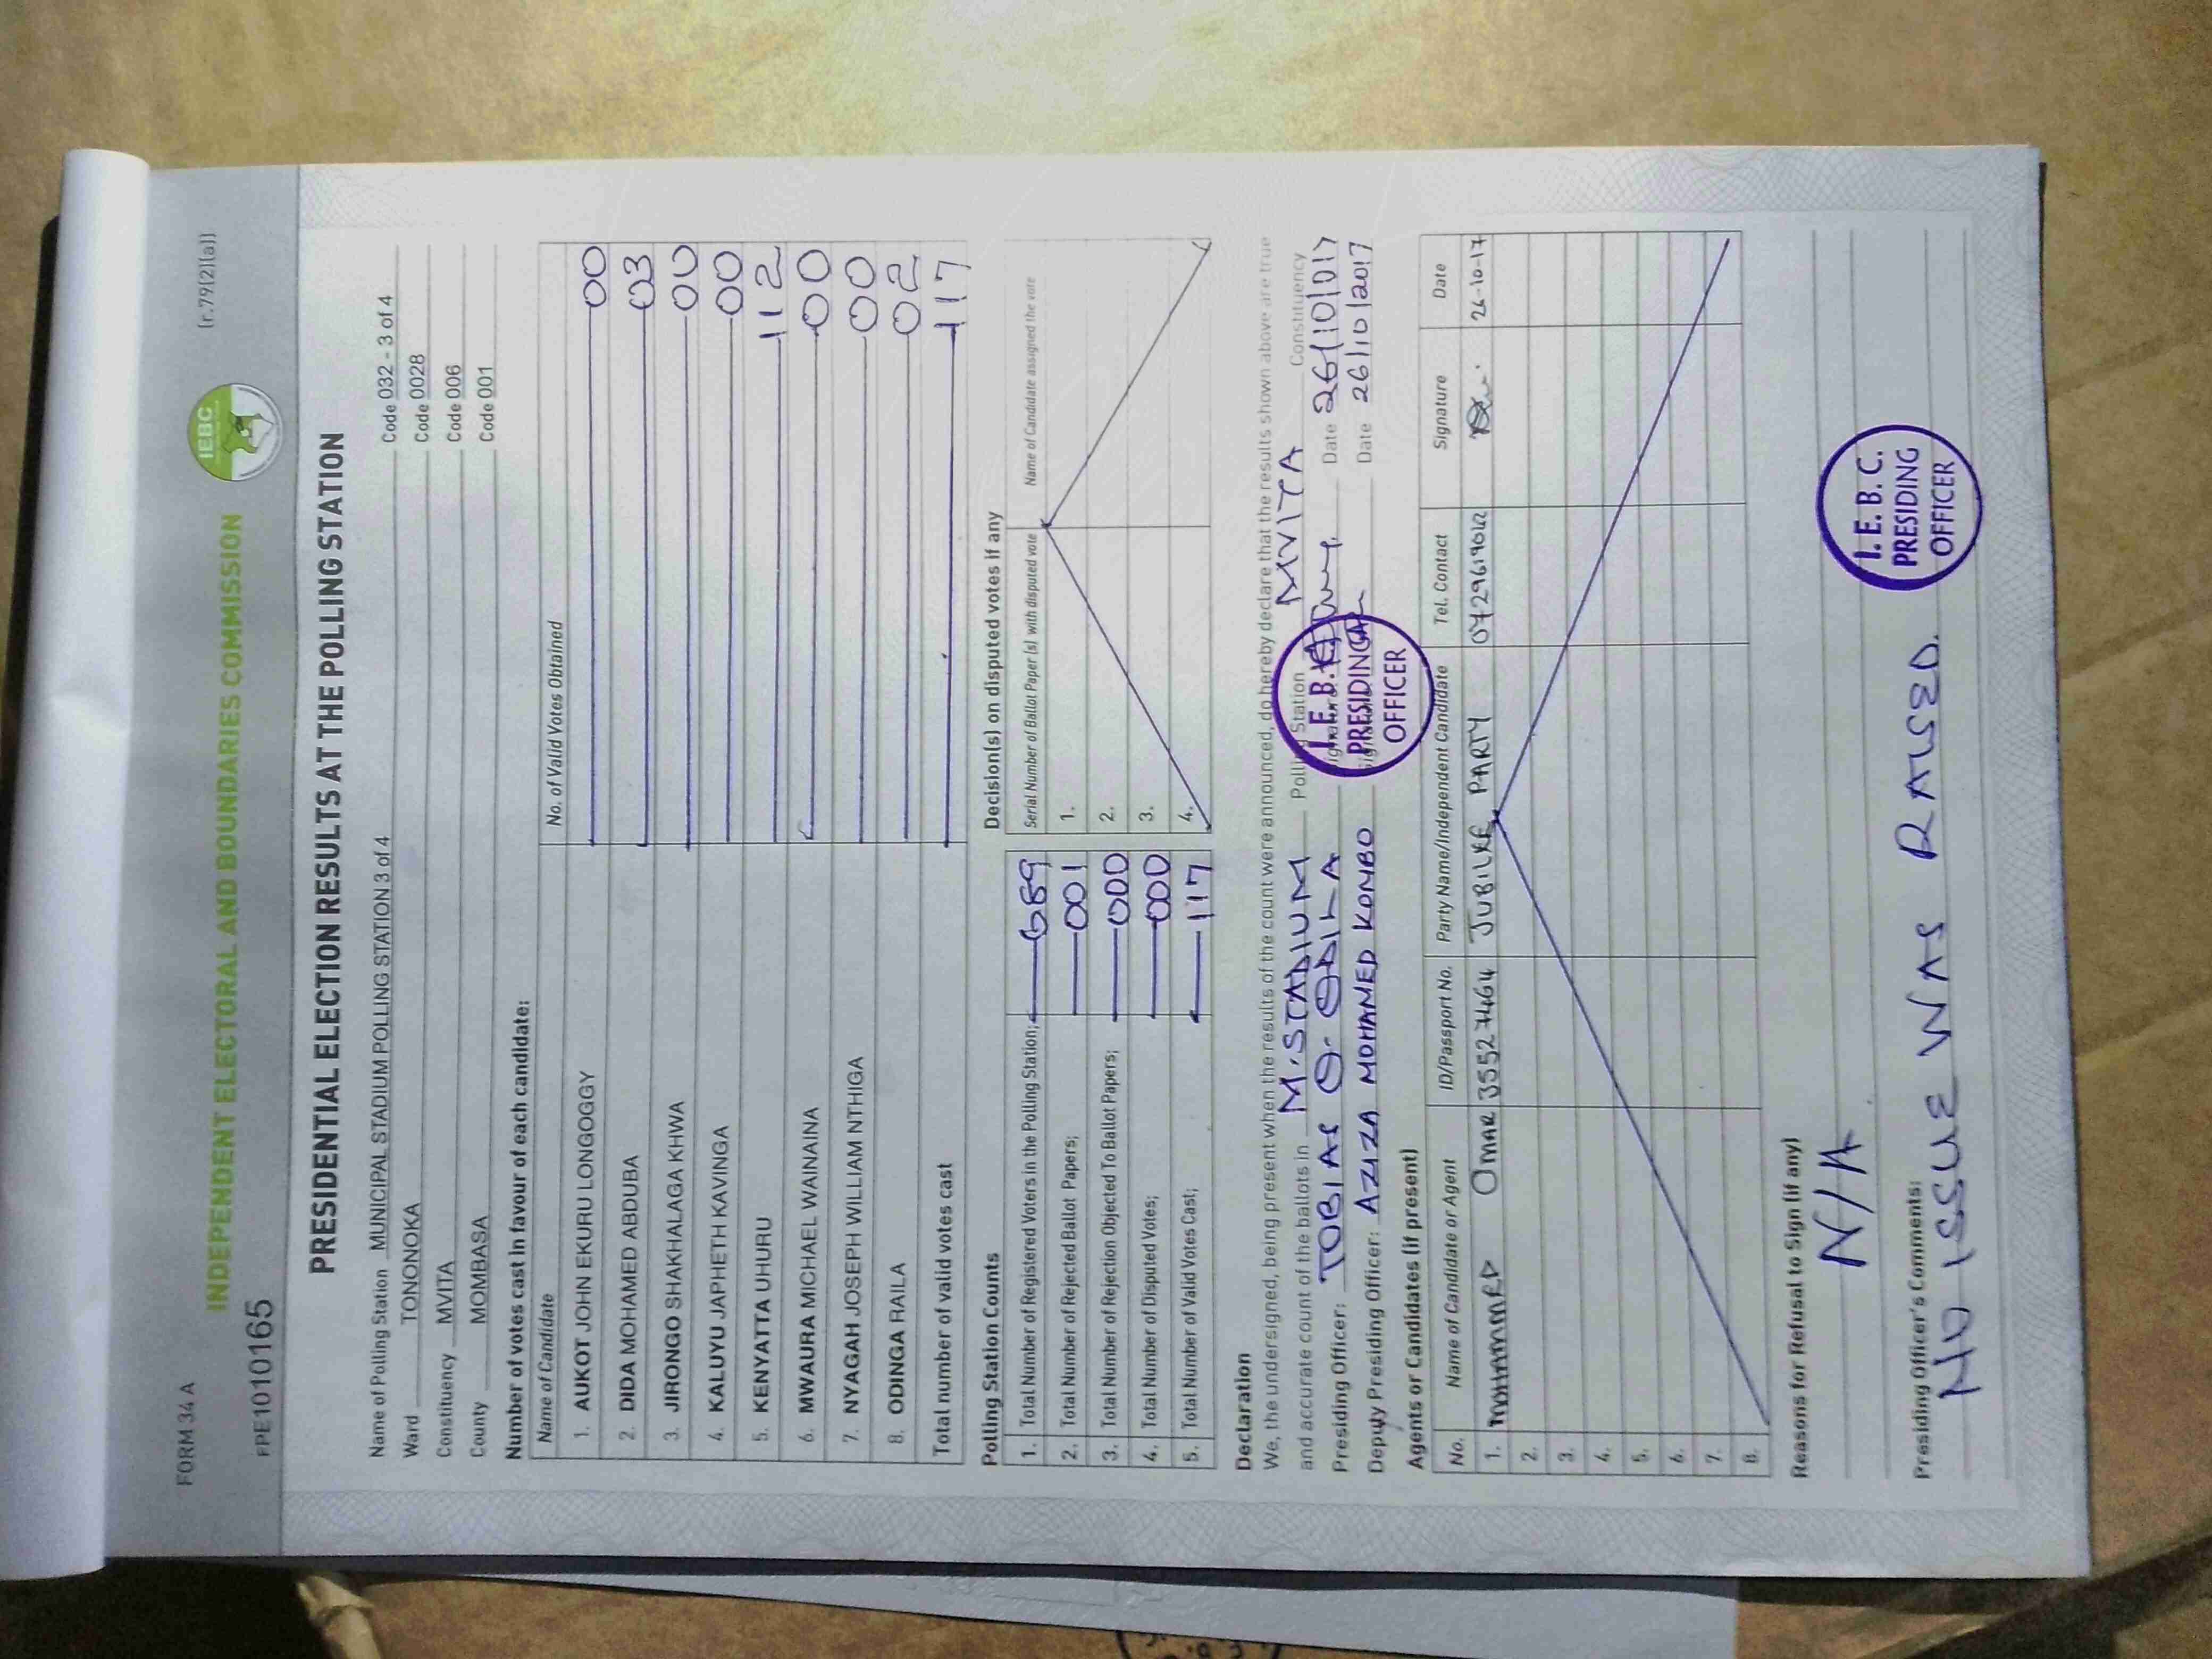 FORM 34 A
(r.79(2)(a))
INDEPENDENT ELECTORAL AND BOUNDARIES COMMISSION
IEBC
FPE1010165
PRESIDENTIAL ELECTION RESULTS AT THE POLLING STATION
Name of Polling Station MUNICIPAL STADIUM POLLING STATION 3 of 4 Code 032 - 3 of 4
Ward TONONOKA Code 0028
Constituency MVITA Code 006
County MOMBASA Code 001
Number of votes cast in favour of each candidate:
Name of Candidate No. of Valid Votes Obtained
1. AUKOT JOHN EKURU LONGOGGY 00
2. DIDA MOHAMED ABDUBA 03
3. JIRONGO SHAKHALAGA KHWA 00
4. KALUYU JAPHETH KAVINGA 00
5. KENYATTA UHURU 112
6. MWAURA MICHAEL WAINAINA 00
7. NYAGAH JOSEPH WILLIAM NTHIGA 00
8. ODINGA RAILA 02
Total number of valid votes cast 117
Polling Station Counts
1. Total Number of Registered Voters in the Polling Station; 689
2. Total Number of Rejected Ballot Papers; 001
3. Total Number of Rejection Objected To Ballot Papers; 000
4. Total Number of Disputed Votes; 000
5. Total Number of Valid Votes Cast; 117
Decision(s) on disputed votes if any
Serial Number of Ballot Paper (s) with disputed vote Name of Candidate assigned the vote
1.
2.
3.
4.
Declaration
We, the undersigned, being present when the results of the count were announced, do hereby declare that the results shown above are true
and accurate count of the ballots in M. STADIUM Polling Station MVITA Constituency
Presiding Officer: TOBIAS O. ODIKA Date 26/10/2017
Deputy Presiding Officer: AZIZA MOHAMED KOMBO Date 26/10/2017
I. E. B. C.
PRESIDING
OFFICER
Agents or Candidates (if present)
No. Name of Candidate or Agent ID/Passport No. Party Name/Independent Candidate Tel. Contact Signature Date
1. MOHAMMED OMAR 35527464 JUBILEE PARTY 0729619012 26-10-17
2.
3.
4.
5.
6.
7.
8.
Reasons for Refusal to Sign (if any)
N/A
Presiding Officer's Comments:
NO ISSUE WAS RAISED.
I. E. B. C.
PRESIDING
OFFICER